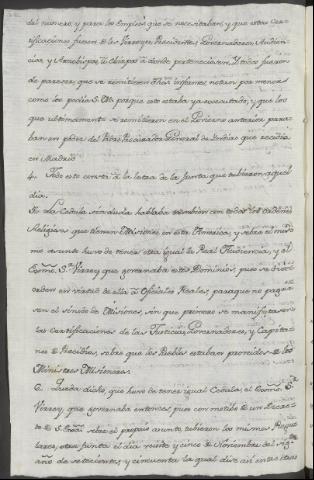 del numero, y para los empleos que se necesitaban, y que estas Cer-
tificaciones fuesen de los Virreyes, Presidentes, Governadores, Audien-
cias, y Arzobispos, ù Obispos à donde pertenecieran. Y otros fueron
de parecer, que se remitieran dhos informes, no tan por menor
como los pedia S. M. porque esto estaba ya executado, y que los
que ultimamente se remitieron en el Govierno anterior para-
ban en poder del Padre Procurador General de Indias que residia
en Madrid.
4. Todo esto consta à la letra de la Junta que tubieron aquel
dia.
5. La Cedula sin duda hablaba tambien con todas las ordenes
Religiosas que tienen Misiones en esta America, y sobre el mismo
asunto huvo de tener otra igual la Real Audiencia, y el
Exmô. S. Virrey que governaba estos Dominios, pues se dio la
orden en virtud de ella à Oficiales Reales, para que no paga-
sen el sinodo de Misiones, sin que primero se manifestaran
las certificaciones de las Justicias, Governadores, y Capita-
nes de Presidios, sobre que los Pueblos estaban proveidos de los
Ministros Misioneros.
6. Queda dicho, que huvo de tener igual Cedula el Exmô. Sr.
Virrey, que governaba entonces, pues con motivo de un Decre-
to de S. Exâ. sobre el propio asunto, tubieron los mismos Regu-
lares, otra Junta el dia veinte y cinco de Noviembre del
año de setecientos, y cincuenta la qual dice asi entre otras